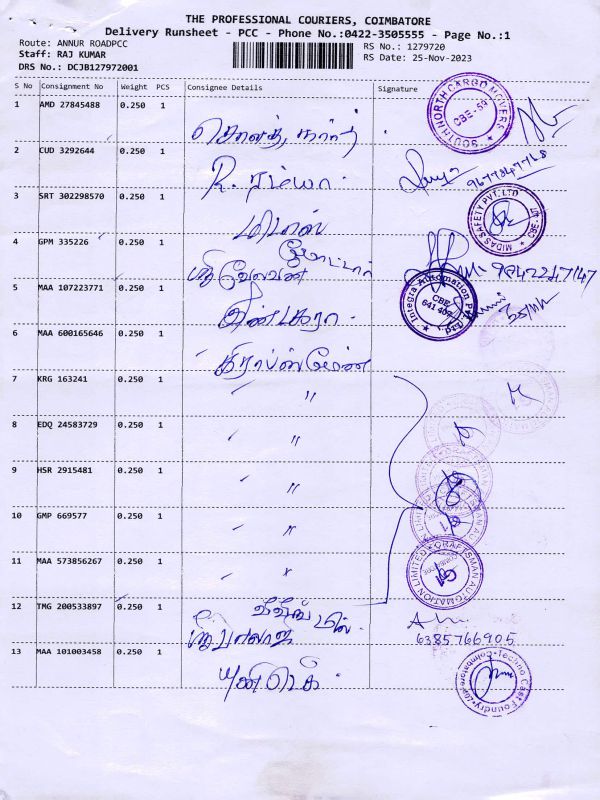 THE PROFESSIONAL COURIERS, COIMBATORE
Delivery Runsheet - PCC - Phone No.:0422-3505555 - Page No.:1
Route: ANNUR ROADPCC
RS No.: 1279720
Staff: RAJ KUMAR
RS Date: 25-Nov-2023
DRS No.: DCJB127972001
S No Consignment No Weight PCS Consignee Details Signature
1 AMD 27845488 0.250 1
SOUTH NORTH CARGO MOVERS
CBE-69
2 CUD 3292644 0.250 1 R. ரம்யா.
9677847768
3 SRT 302298570 0.250 1 மிடாஸ்
MIDAS SAFETY PVT. LTD
4 GPM 335226 0.250 1 வேலவன் மோட்டார்
9042247147
5 MAA 107223771 0.250 1 இன்டகரா.
Integra Automation Pvt Ltd
CBE
6 MAA 600165646 0.250 1 கிராப்ஸ்மேன்
7 KRG 163241 0.250 1 "
8 EDQ 24583729 0.250 1 "
9 HSR 2915481 0.250 1 "
10 GMP 669577 0.250 1 "
11 MAA 573856267 0.250 1 "
CRAFTSMAN AUTOMATION LIMITED
12 TMG 200533897 0.250 1 ஸ்ரீ பாலாஜி
6385766905
13 MAA 101003458 0.250 1
Techno Cast Foundry